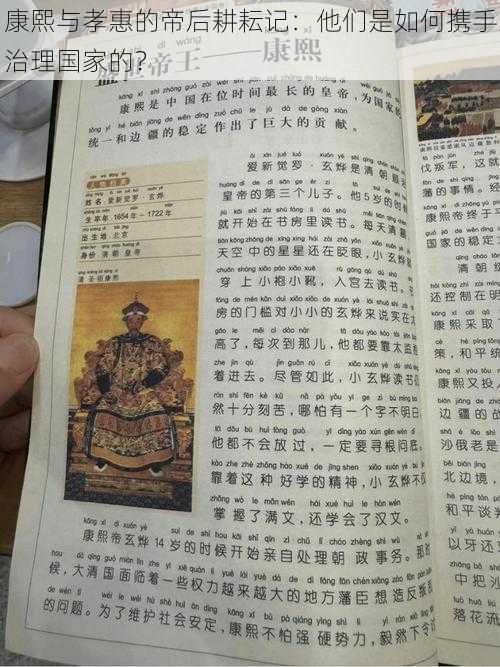 康熙与孝惠的帝后耕耘记：他们是如何携手
治理国家的？
盛世帝王——康熙
康熙是中国在位时间最长的皇帝，为国家的
统一和边疆的稳定作出了巨大的贡献。
姓名：爱新觉罗·玄烨
生卒年：1654年－1722年
出生地：北京
身份：清朝皇帝
清圣祖康熙
爱新觉罗·玄烨是清朝顺
皇帝的第三个儿子。他5岁的
就开始在书房里读书。每天清
天空中的星星还在眨眼，小玄烨
穿上小袍小靴，入宫去读书。
房的门槛对小小的玄烨来说实在
高了，每次到那儿，他都要靠太
着进去。尽管如此，小玄烨读书
然十分刻苦，哪怕有一个字不明白
他都不会放过，一定要寻根问底。
靠着这种好学的精神，小玄烨不仅
掌握了满文，还学会了汉文。
康熙帝玄烨14岁的时候开始亲自处理朝政事务。那时
候，大清国面临着一些权力越来越大的地方藩臣想造反
的问题。为了维护社会安定，康熙不怕强硬势力，毅然下令
伐叛军，这就
藩的事情。
康熙帝终于
国家的稳定
清朝
还控制在明
康熙采取
策，和平统
康熙又投入
边疆的战
沙俄老是
北边境，
和平
以牙还
中把沙
落花流